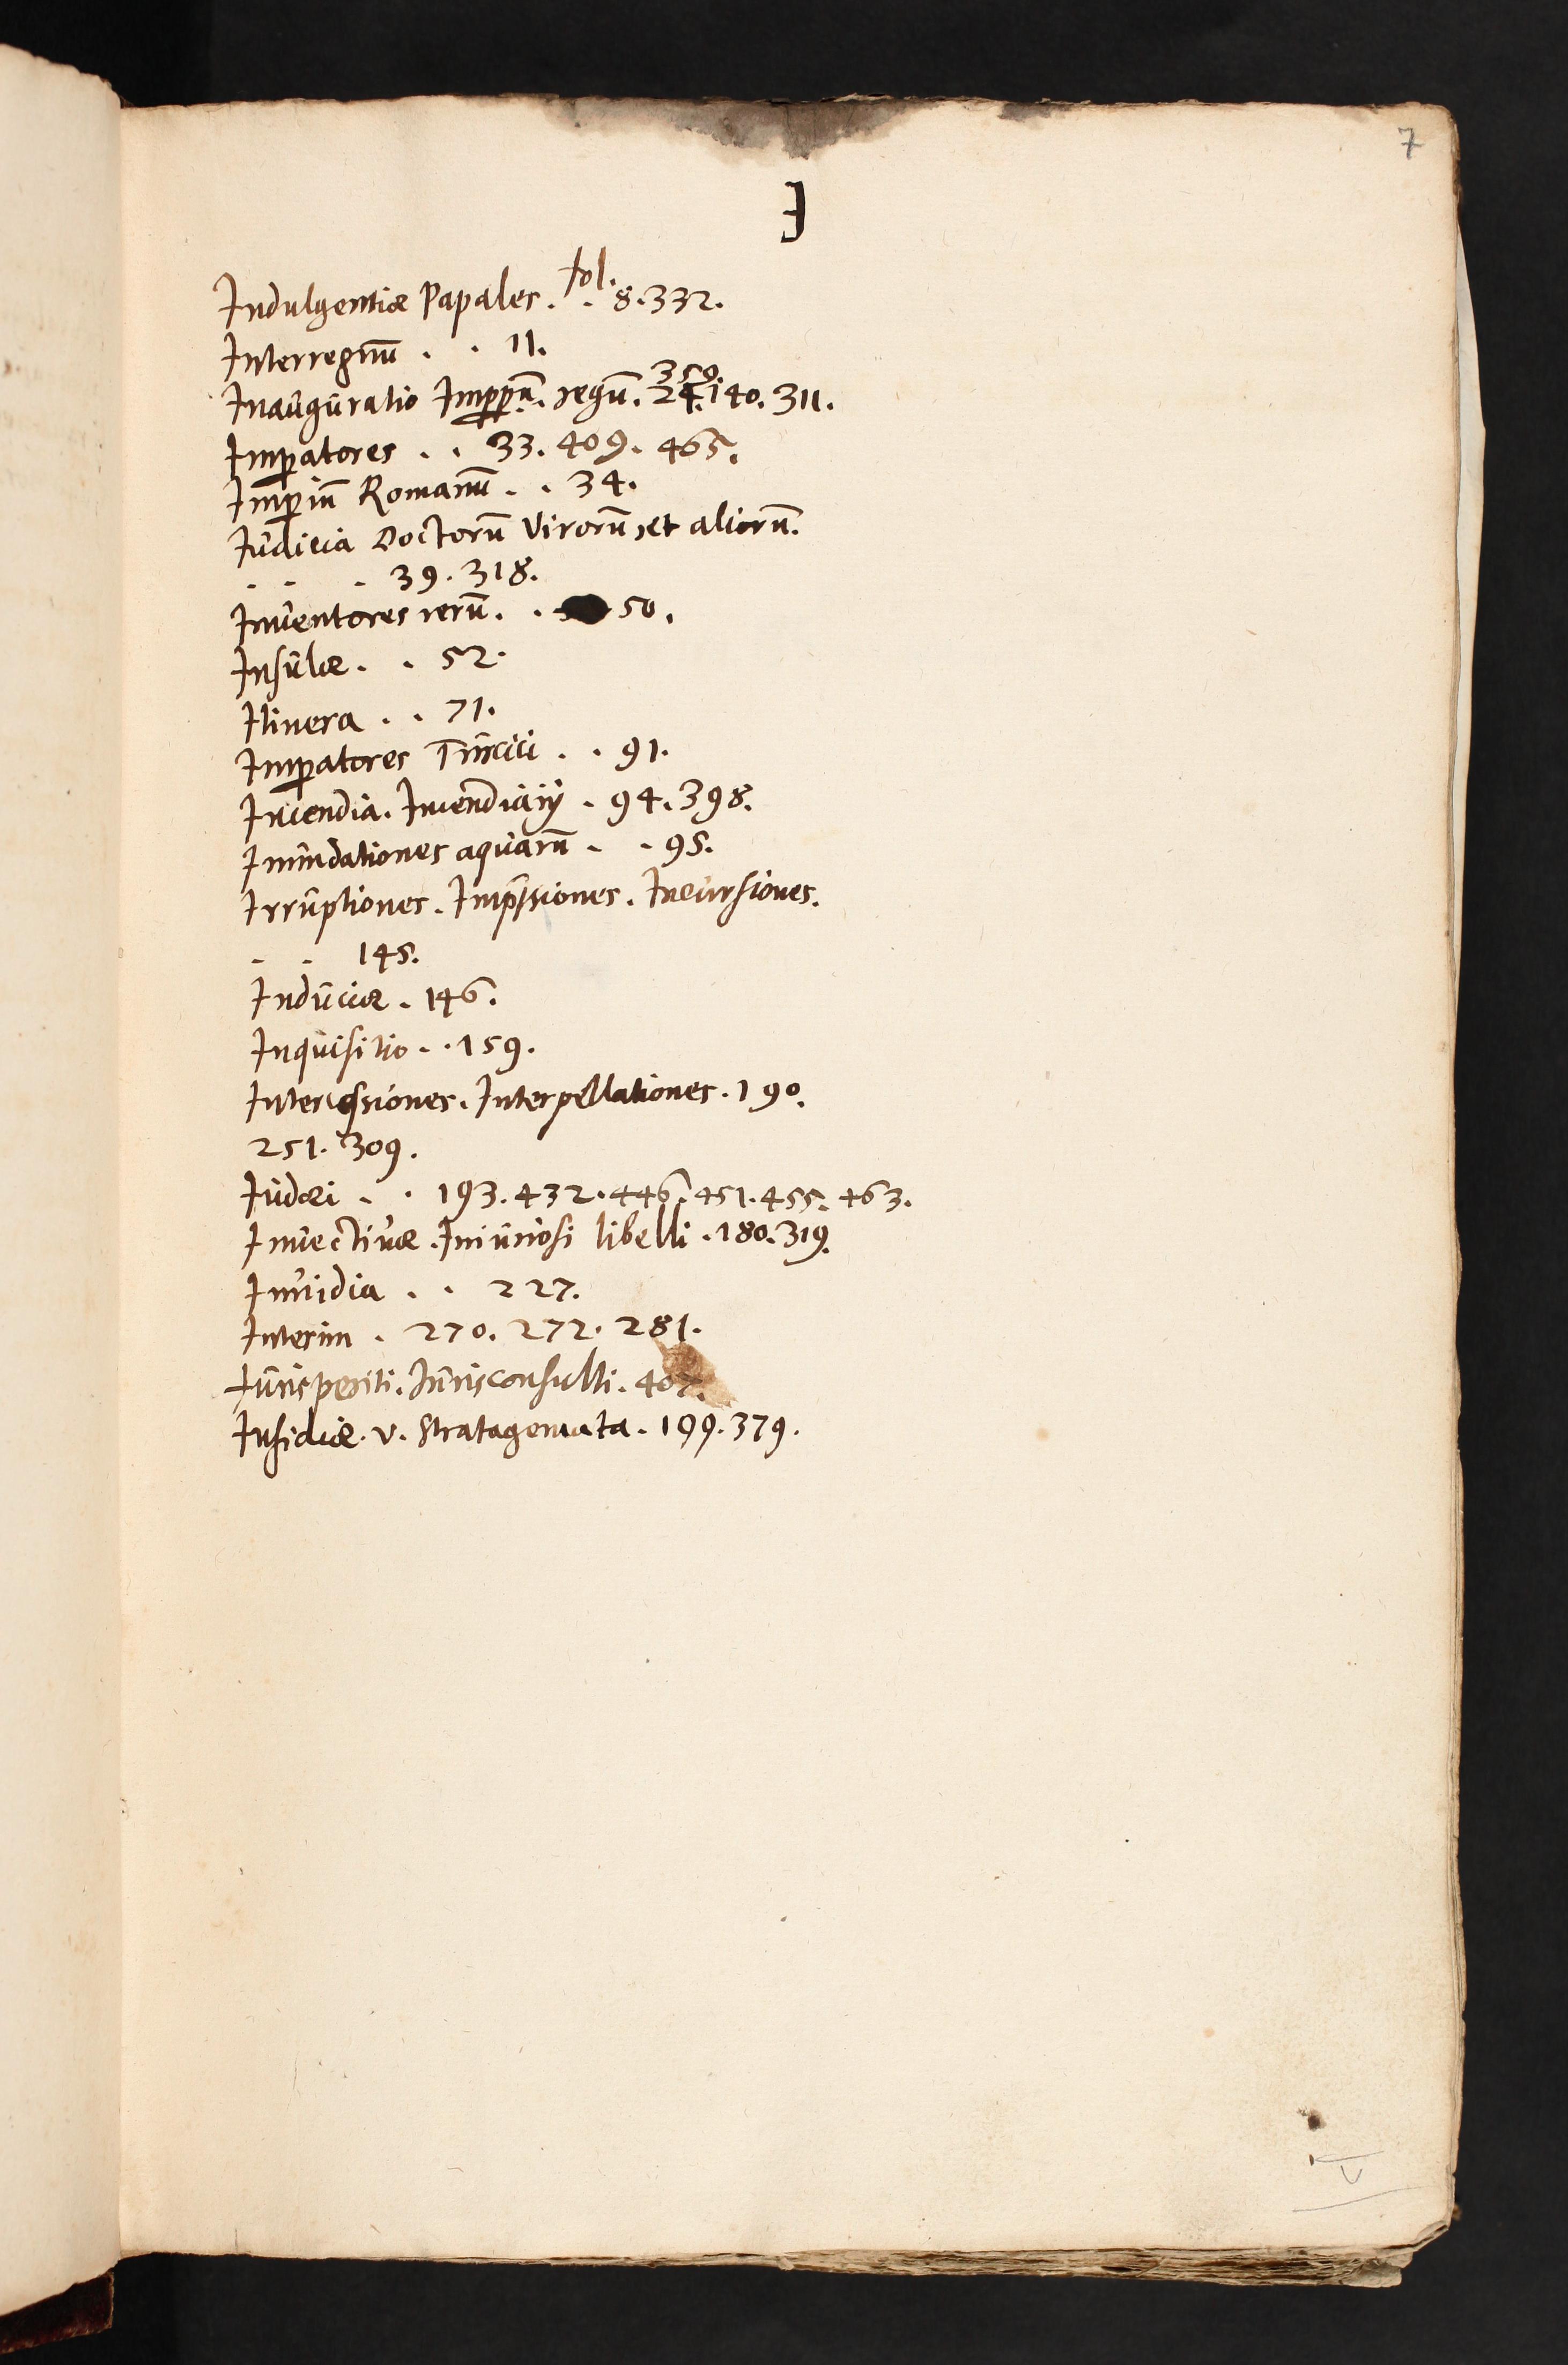 7
I
Indulgentiæ Papales . fol. . 8. 332.
Interregnū . . 11.
Inauguratio Impp̄ū. regū. 24. 350. 140. 311.
Imꝑatores . . 33. 409. 465.
Imꝑiū Romanū . . 34.
Iudicia Doctorū Virorū et aliorū.
. . . 39. 318.
Inuentores rerū . . 50.
Insulæ . . 52.
Itinera . . 71.
Imꝑatores Turcici . . 91.
Incendia. Incendiarij . 94. 398.
Inundationes aquarū . . 95.
Irruptiones. Imp̄ssiones. Incursiones.
. . 145.
Induciæ . 146.
Inquisitio . . 159.
Intercessiones. Interpellationes. 190.
251. 309.
Iudæi . . 193. 432. 446. 451. 455. 463.
Inuectiuæ. Iniuriosi libelli . 180. 319.
Inuidia . . 227.
Interim . 270. 272. 281.
Iurisperiti. Iurisconsulti. 407.
Insidiæ. v. Stratagemata . 199. 379.